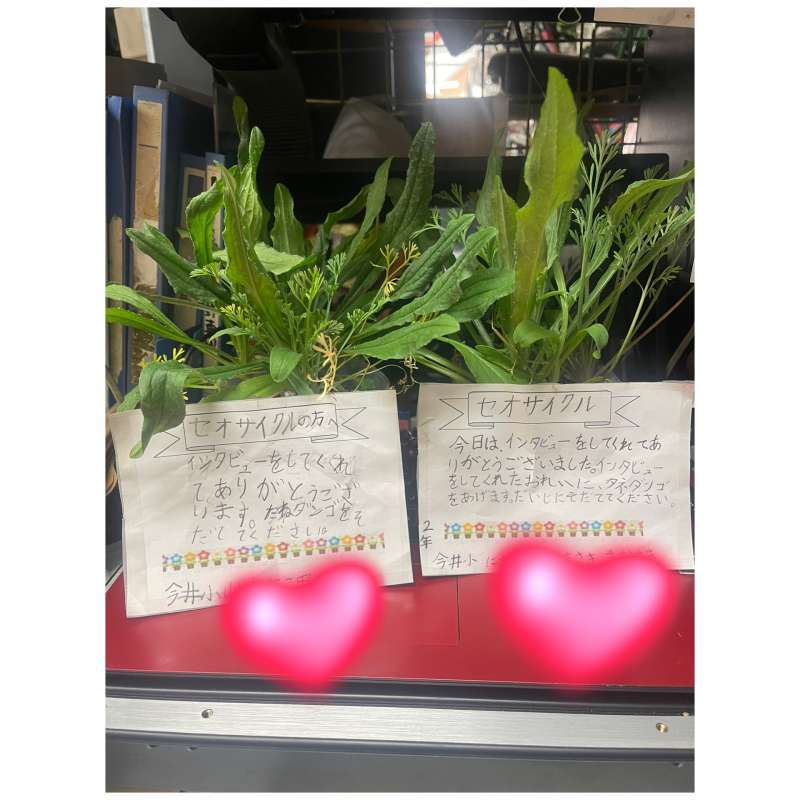 セオサイクルの方へ
インタビューをしてくれ
てありがとうござ
います。たねダンゴをそ
だててくださいね
今井小
セオサイクル
今日は、インタビューをしてくれてあ
りがとうございました。インタビュー
をしてくれたおれいに、タネダンゴ
をあげます。だいじにそだててください。
2年
今井小